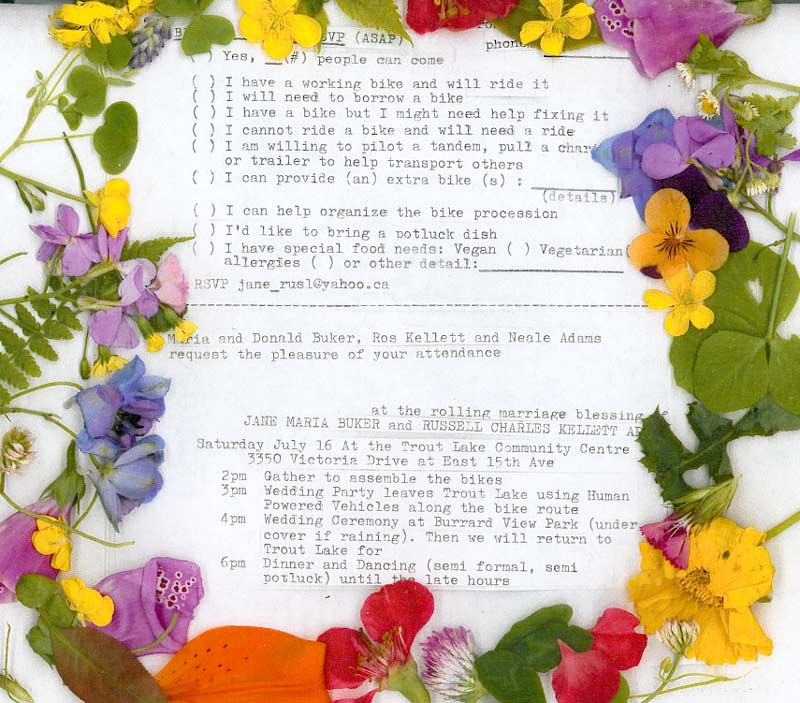 RSVP (ASAP)
phone
( ) Yes, __(#) people can come
( ) I have a working bike and will ride it
( ) I will need to borrow a bike
( ) I have a bike but I might need help fixing it
( ) I cannot ride a bike and will need a ride
( ) I am willing to pilot a tandem, pull a
or trailer to help transport others
( ) I can provide (an) extra bike (s) : ________
(details)
( ) I can help organize the bike procession
( ) I'd like to bring a potluck dish
( ) I have special food needs: Vegan ( ) Vegetarian(
allergies ( ) or other detail:______________
RSVP jane_rusl@yahoo.ca
Maria and Donald Buker, Ros Kellett and Neale Adams
request the pleasure of your attendance
at the rolling marriage blessing of
JANE MARIA BUKER and RUSSELL CHARLES KELLETT AD
Saturday July 16 At the Trout Lake Community Centre
3350 Victoria Drive at East 15th Ave
2pm Gather to assemble the bikes
3pm Wedding Party leaves Trout Lake using Human
Powered Vehicles along the bike route
4pm Wedding Ceremony at Burrard View Park (under
cover if raining). Then we will return to
Trout Lake for
6pm Dinner and Dancing (semi formal, semi
potluck) until the late hours